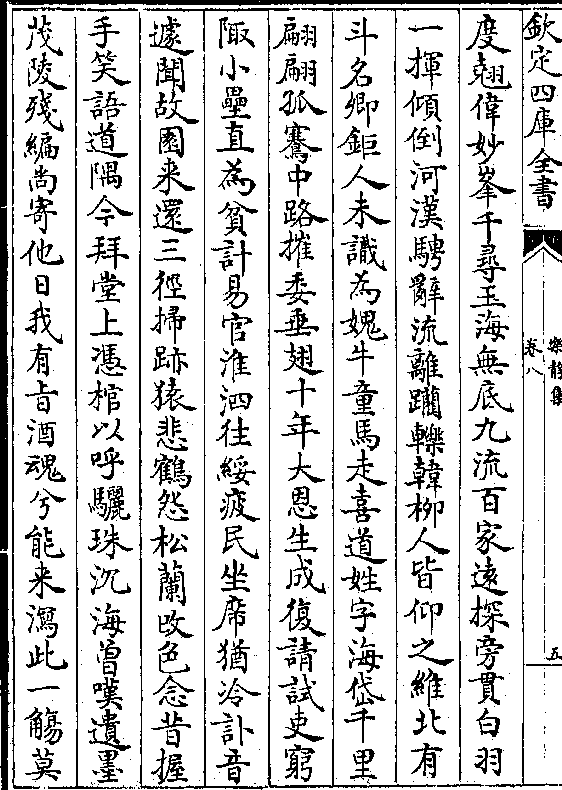 欽定四庫全書
樂静集
卷八
五
度翹偉妙峯千尋玉海無底九流百家遠探旁貫白羽
一揮傾倒河漢騁辭流離躪轢韓栁人皆仰之維北有
斗名卿鉅人未識為媿牛童馬走喜道姓字海岱千里
翩翩孤騫中路摧委垂翅十年大恩生成復請試吏窮
陬小壘直為貧計易官淮泗徃綏疲民坐席猶冷訃音
遽聞故園来還三徑掃跡猿悲鶴怨松蘭改色念昔握
手笑語道隅今拜堂上憑棺以呼驪珠沉海曽嘆遺墨
茂陵殘編尚寄他日我有㫖酒魂兮能来瀉此一觴莫